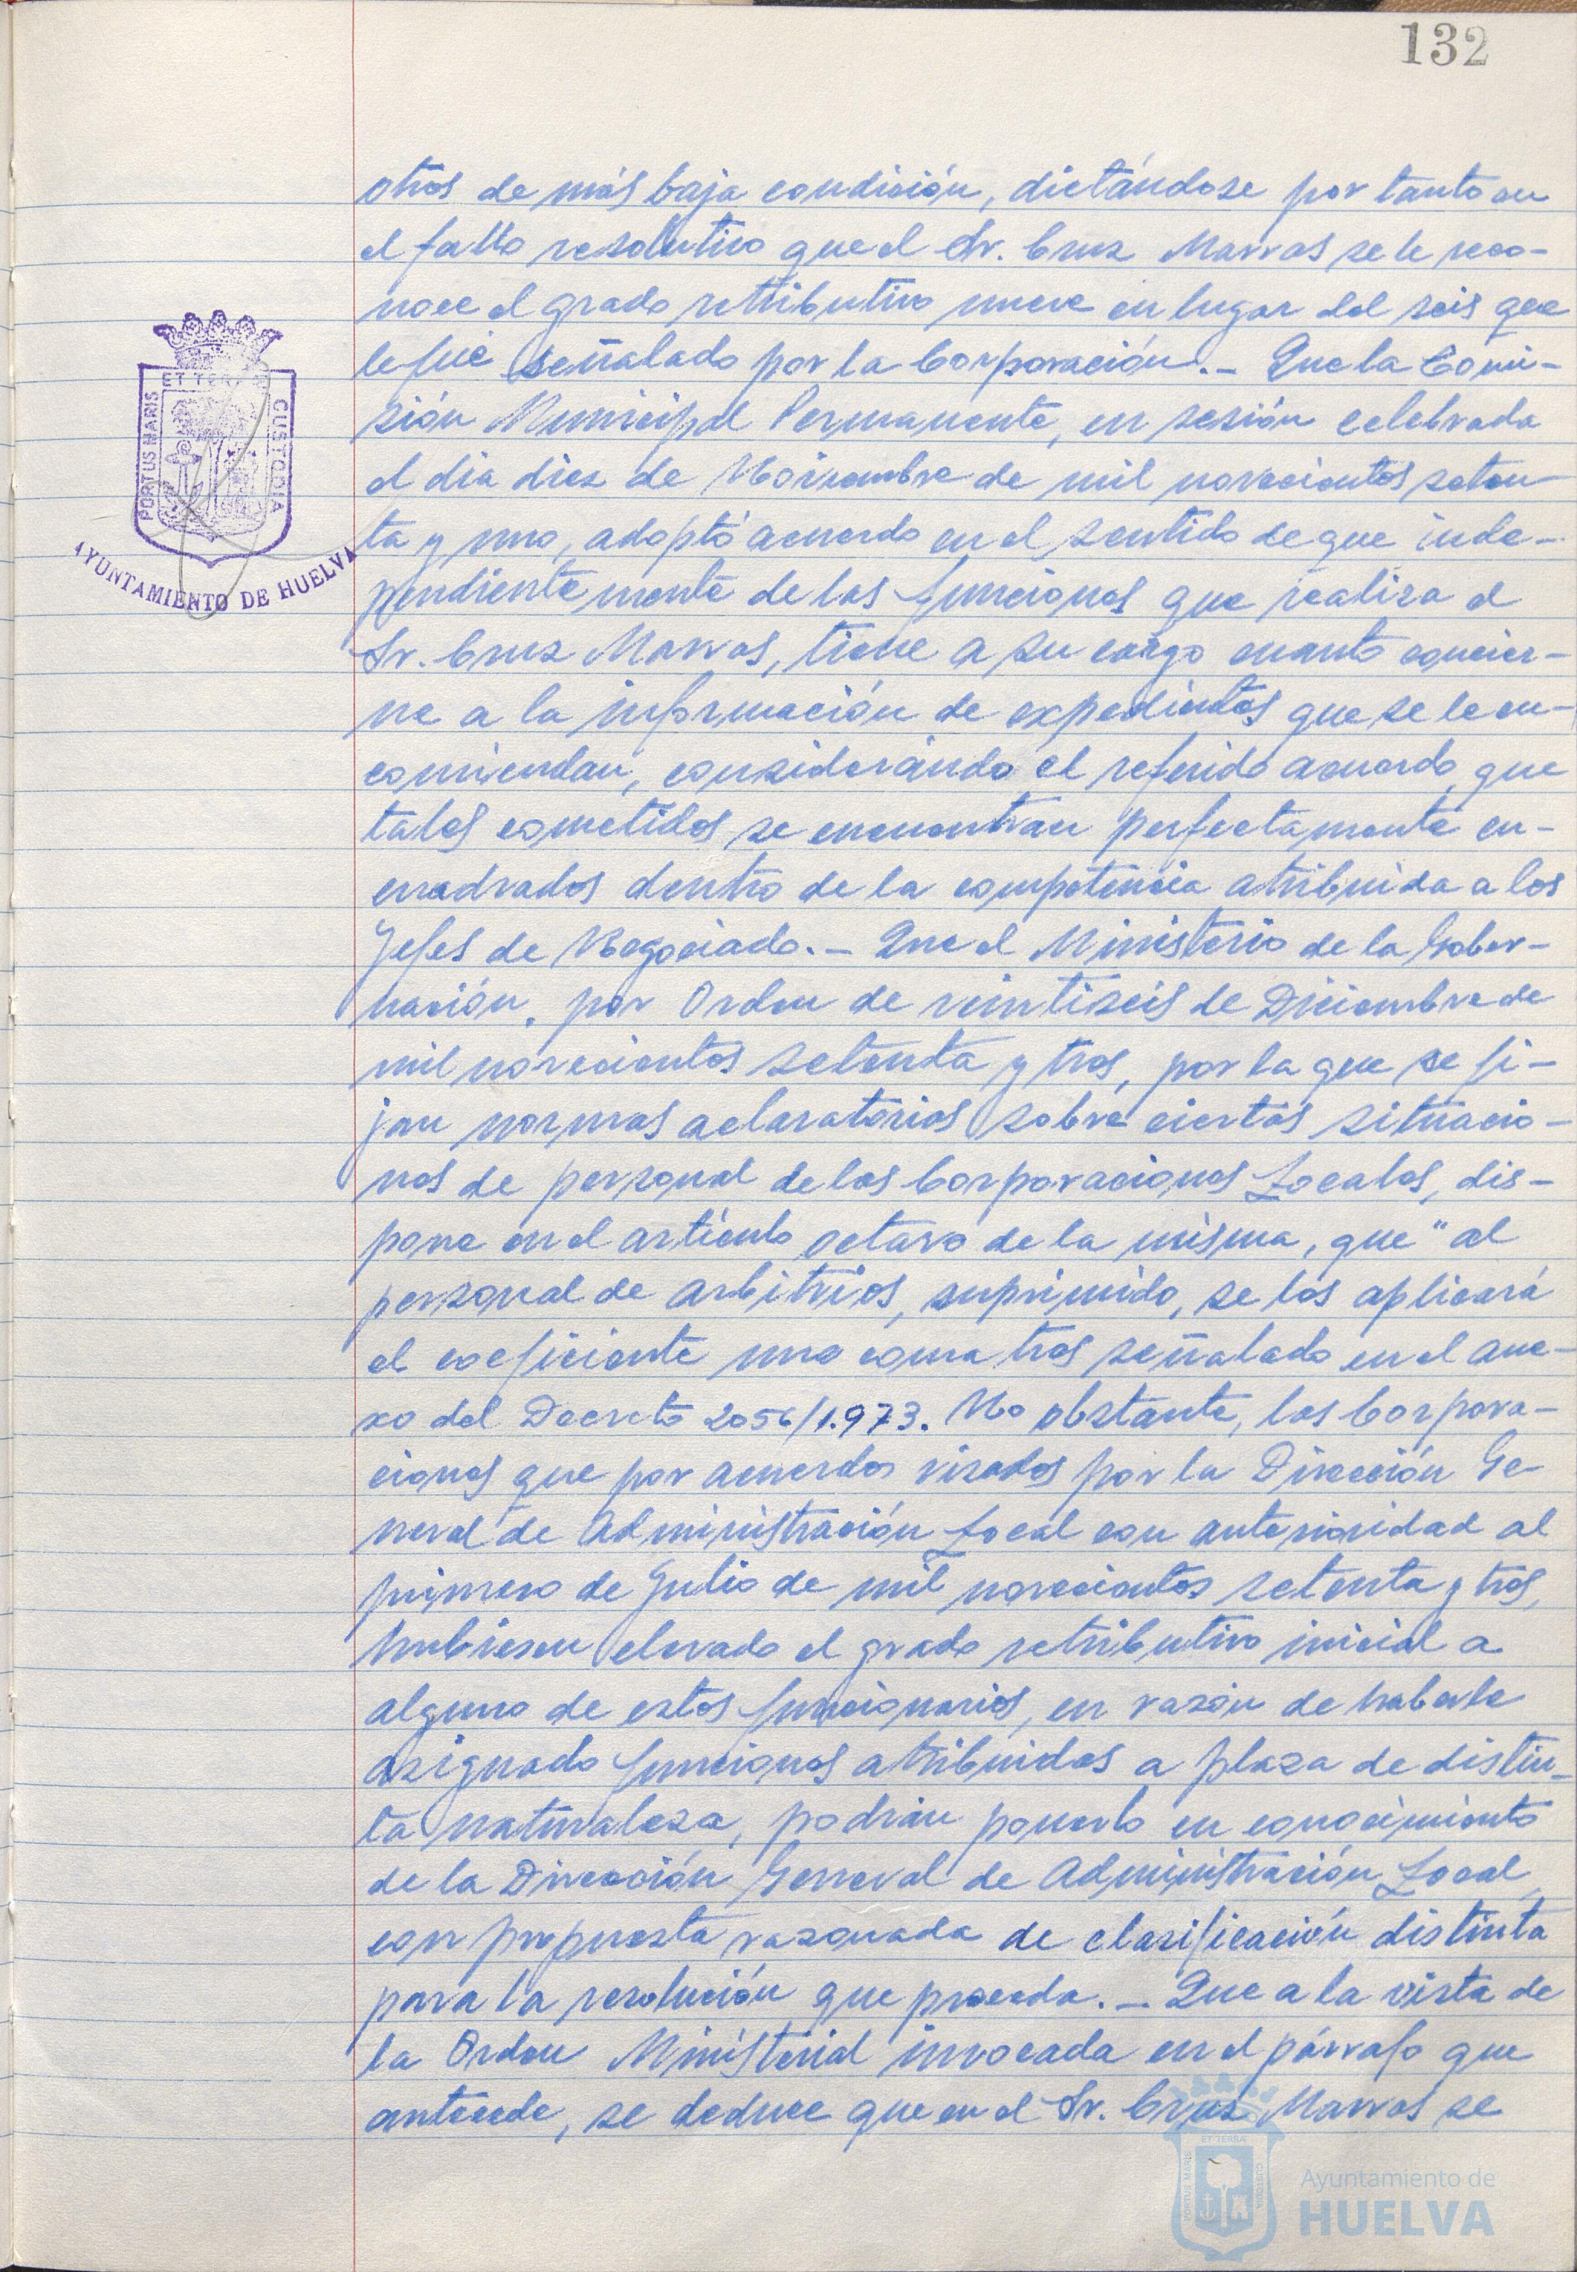 132
otros de más baja condición, dictándose por tanto en
el fallo resolutivo que el Sr. Cruz Marras se le reco-
noce el grado retributivo nueve en lugar del seis que
le fué señalado por la Corporación.- Que la Comi-
sión Municipal Permanente, en sesión celebrada
el dia diez de Noviembre de mil novecientos seten-
ta y uno, adoptó acuerdo en el sentido de que inde-
pendientemente de las funciones que realiza el
Sr. Cruz Marras, tiene a su cargo cuanto concier-
ne a la información de expedientes que se le en-
comiendan, considerándo el referido acuerdo que
tales cometidos se encuentran perfectamente en-
cuadrados dentro de la competencia atribuida a los
Jefes de Negociado.- Que el Ministerio de la Gober-
nación, por Orden de veintiseis de Diciembre de
mil novecientos setenta y tres, por la que se fi-
jan normas aclaratorias sobre ciertas situacio-
nes de personal de las Corporaciones Locales, dis-
pone en el artículo octavo de la misma, que "al
personal de arbitrios, suprimido, se les aplicará
el coeficiente uno coma tres señalado en el ane-
xo del Decreto 2056/1.973. No obstante, las Corpora-
ciones que por acuerdos visados por la Dirección Ge-
neral de Administración Local con anterioridad al
primero de Julio de mil novecientos setenta y tres,
hubiesen elevado el grado retributivo inicial a
alguno de estos funcionarios, en razón de haberle
asignado funciones atribuidas a plaza de distin-
ta naturaleza, podrán ponerlo en conocimiento
de la Dirección General de Administración Local,
con propuesta razonada de clasificación distinta
para la resolución que proceda.- Que a la vista de
la Orden Ministerial invocada en el párrafo que
antecede, se deduce que en el Sr. Cruz Marras se
PORTUS MARIS
ET TERRAE
CUSTODIA
AYUNTAMIENTO DE HUELVA
PORTUS MARIS
ET TERRA
CUSTODIA
Ayuntamiento de
HUELVA